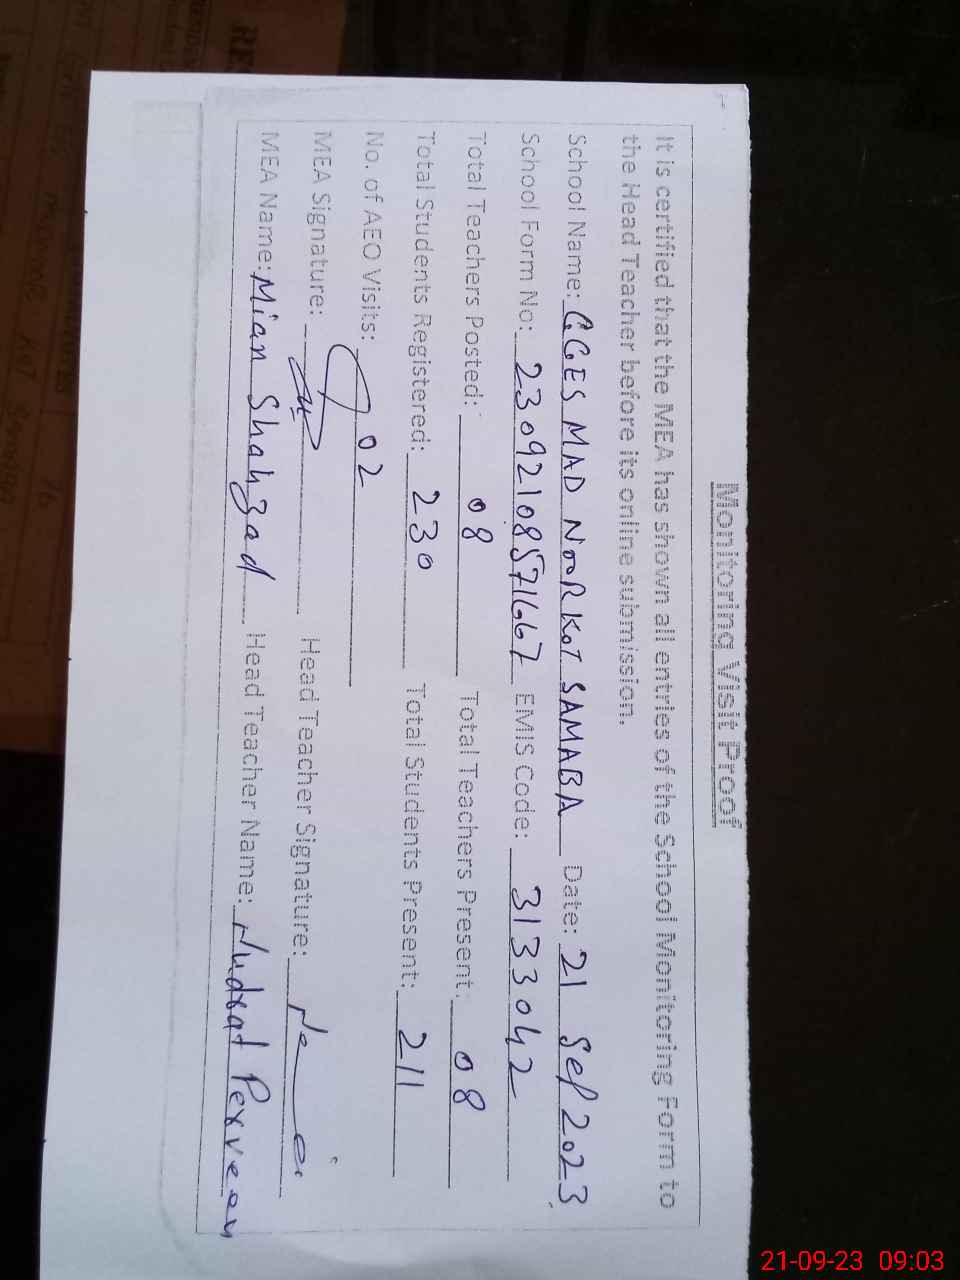 Monitoring Visit Proof
It is certified that the MEA has shown all entries of the School Monitoring Form to
the Head Teacher before its online submission.
School Name: GGES MAD NOORKOT SAMABA Date: 21 Sep 2023
School Form No: 23092108571667 EMIS Code: 3133042
Total Teachers Posted: 08 Total Teachers Present: 08
Total Students Registered: 230 Total Students Present: 211
No. of AEO Visits: 02
MEA Signature: Head Teacher Signature:
MEA Name: Mian Shahzad Head Teacher Name: Nudrat Perveen
21-09-23 09:03